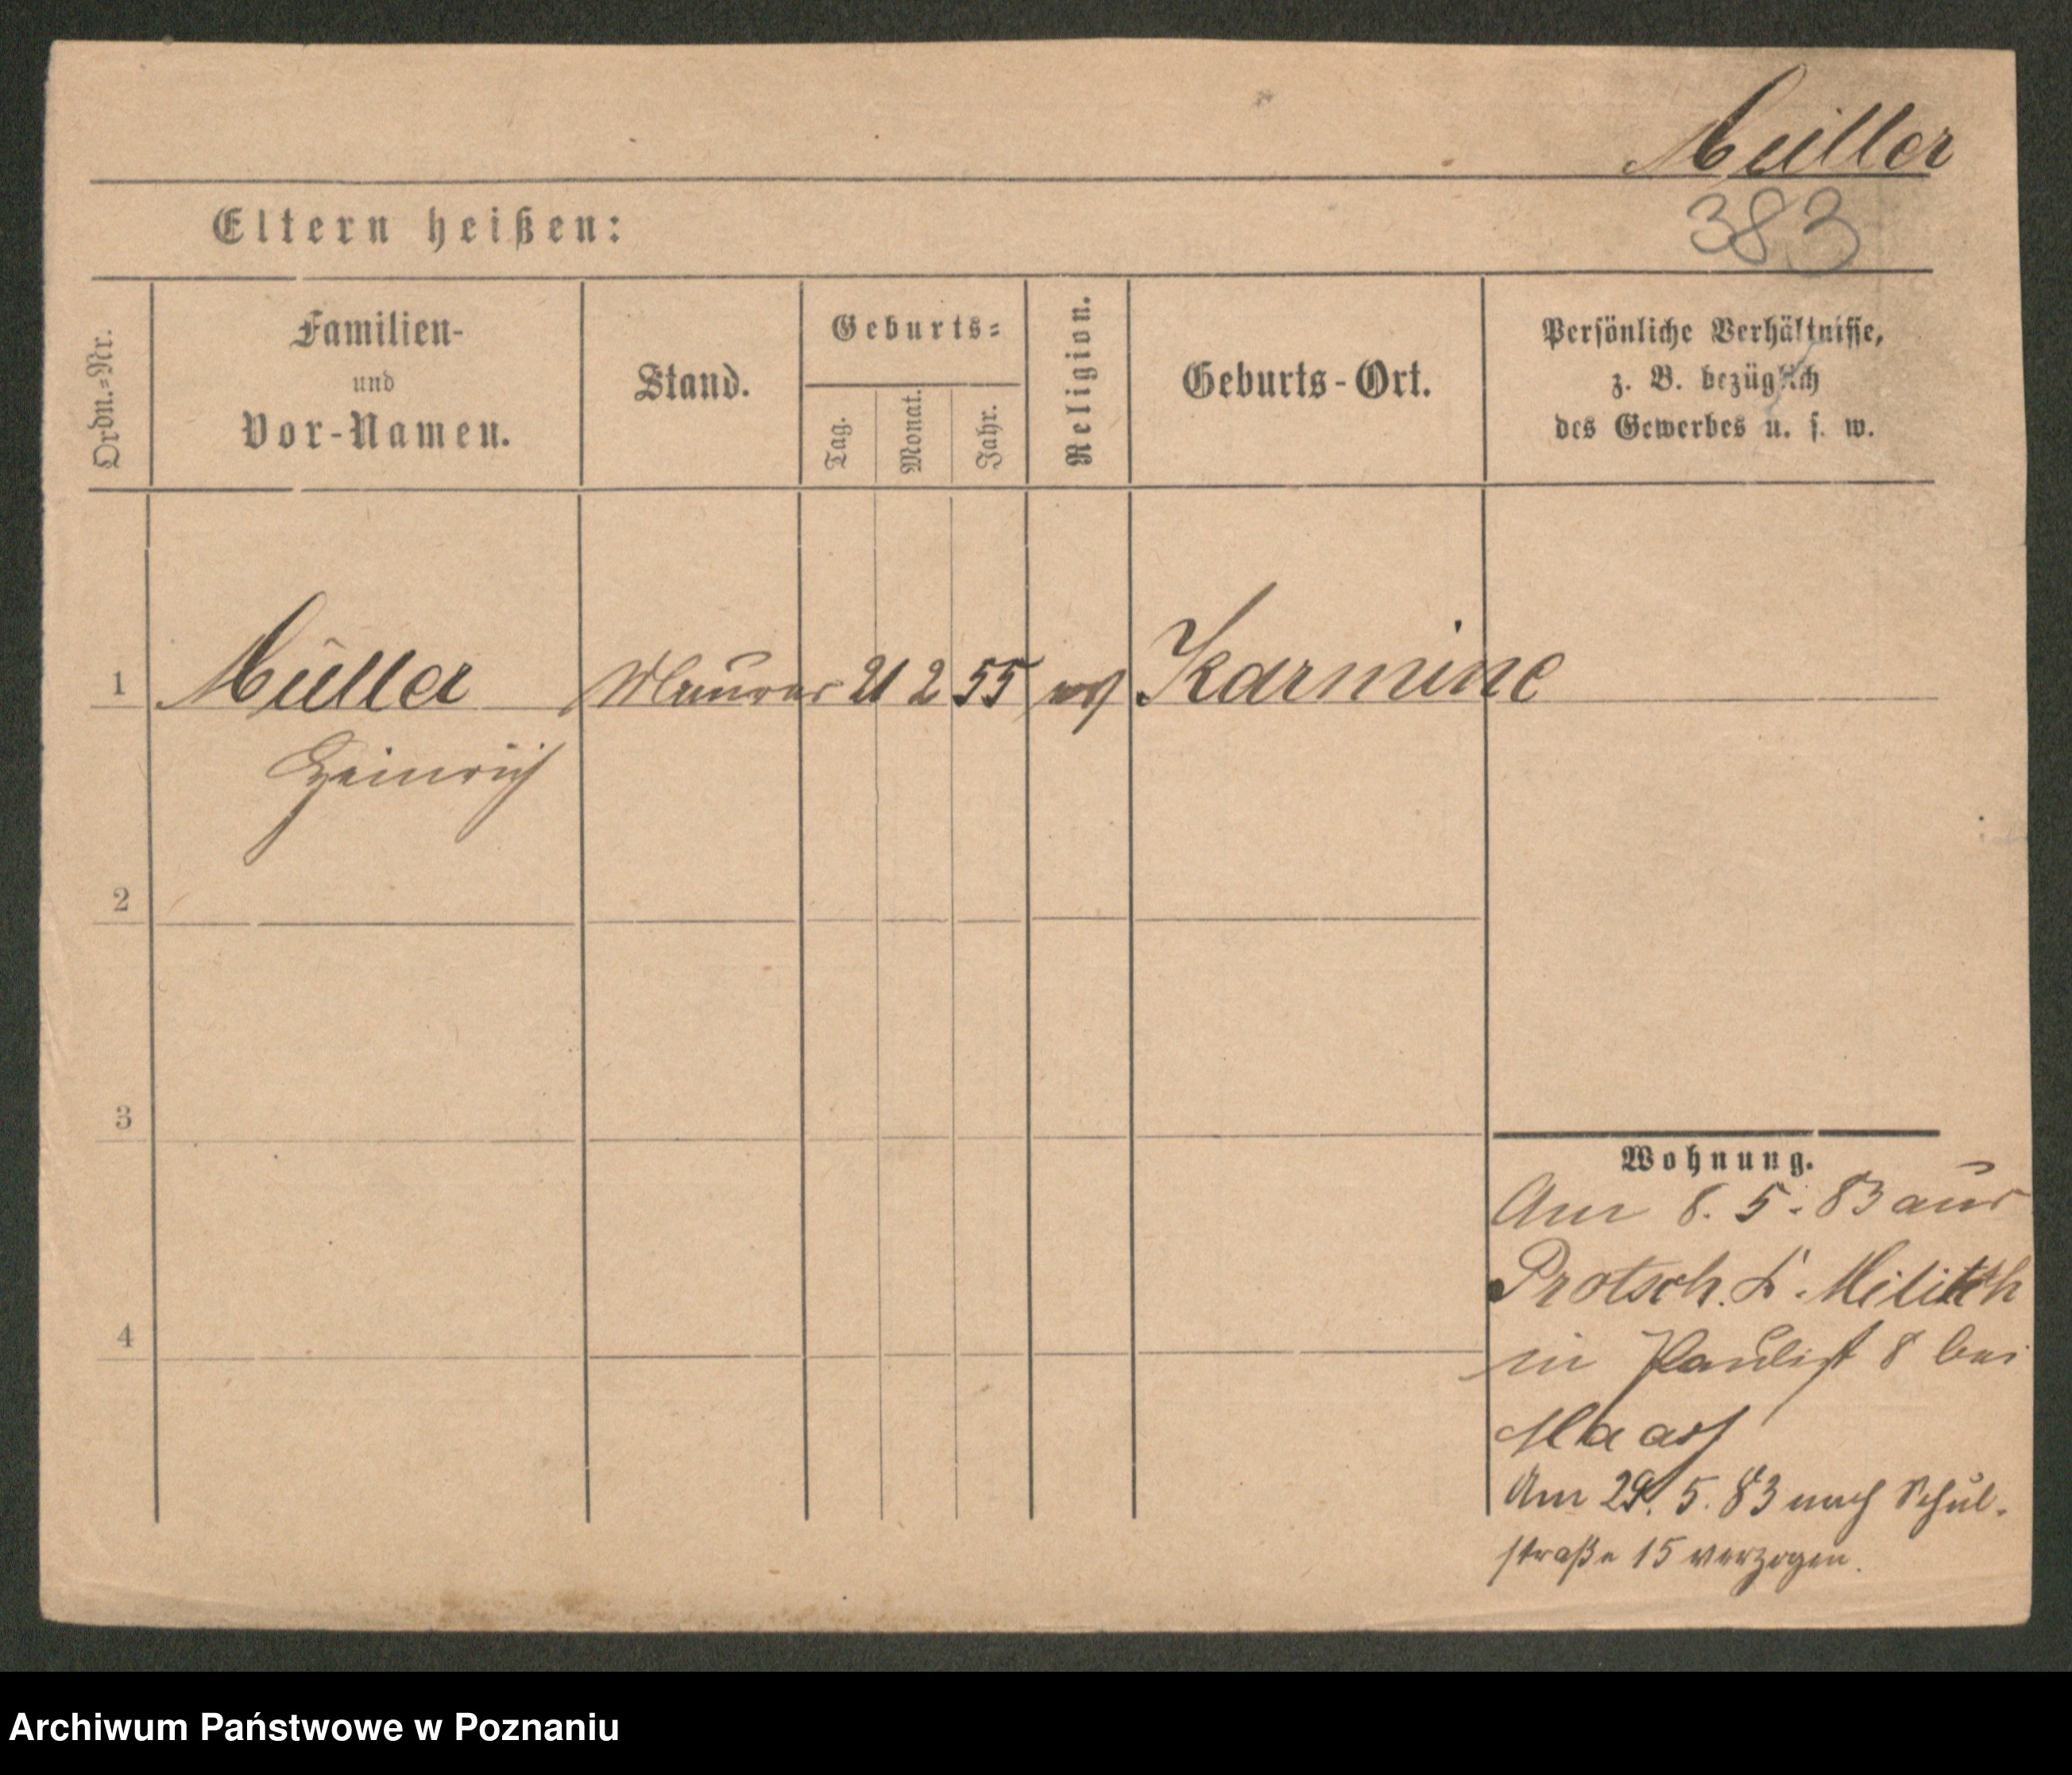 Müller
383
Eltern heißen:
Ordn.=Nr.
Familien-
und
Vor-Namen.
Stand.
Geburts=
Tag.
Monat.
Jahr.
Religion.
Geburts-Ort.
Persönliche Verhältnisse,
z. B. bezüglich
des Gewerbes u. s. w.
1 Müller Maurer 21 2 55 Karmine
Heinrich
2
3
4
Wohnung.
Am 8. 5. 83 aus
Protsch. K. Militsch
in Paulist 8 bei
Maass
Am 29. 5. 83 nach Schul-
straße 15 verzogen.
Archiwum Państwowe w Poznaniu